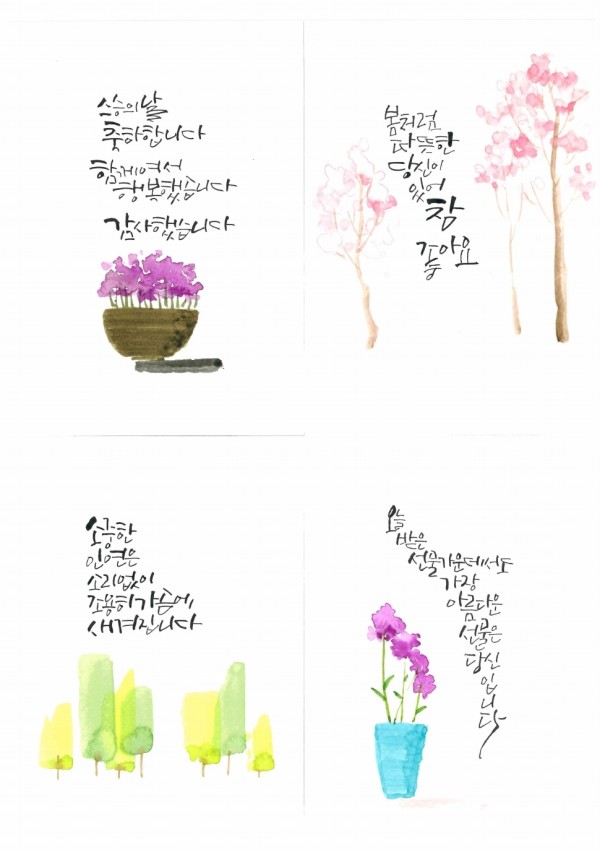 스승의날
축하합니다
함께여서
행복했습니다
감사했습니다
봄처럼
따뜻한
당신이
있어
참
좋아요
소중한
인연은
소리없이
조용히가슴에
새겨집니다
오늘
받은
선물가운데서도
가장
아름다운
선물은
당신
입
니
다